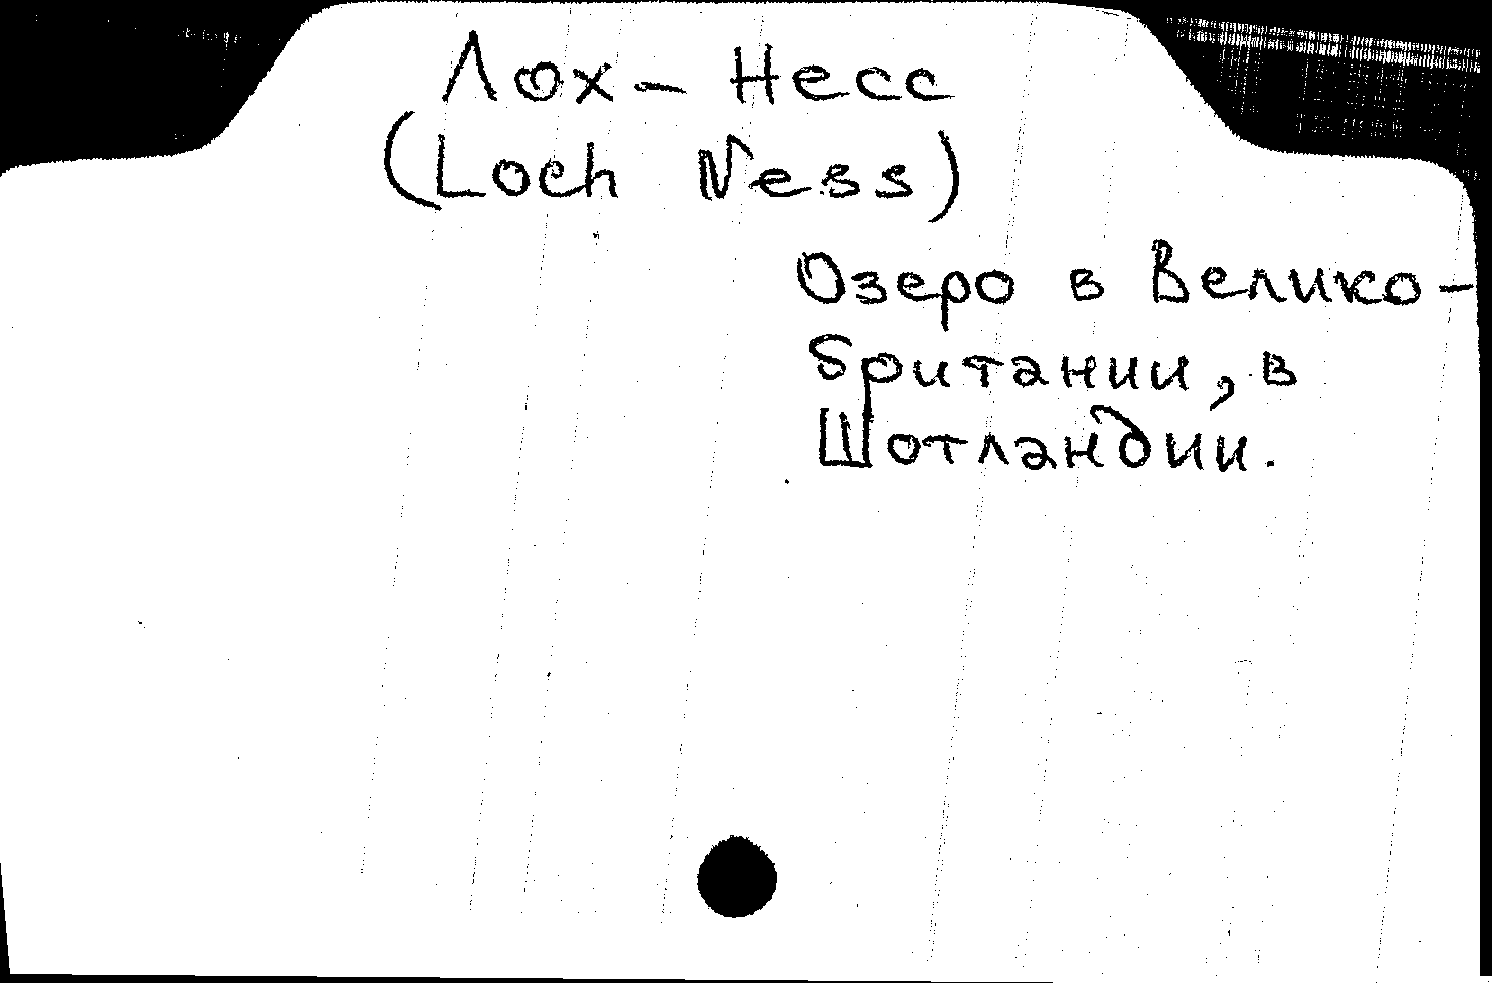 Лох – Несс
(Loch Ness)
Озеро в Велико-
британии, в
Шотландии.